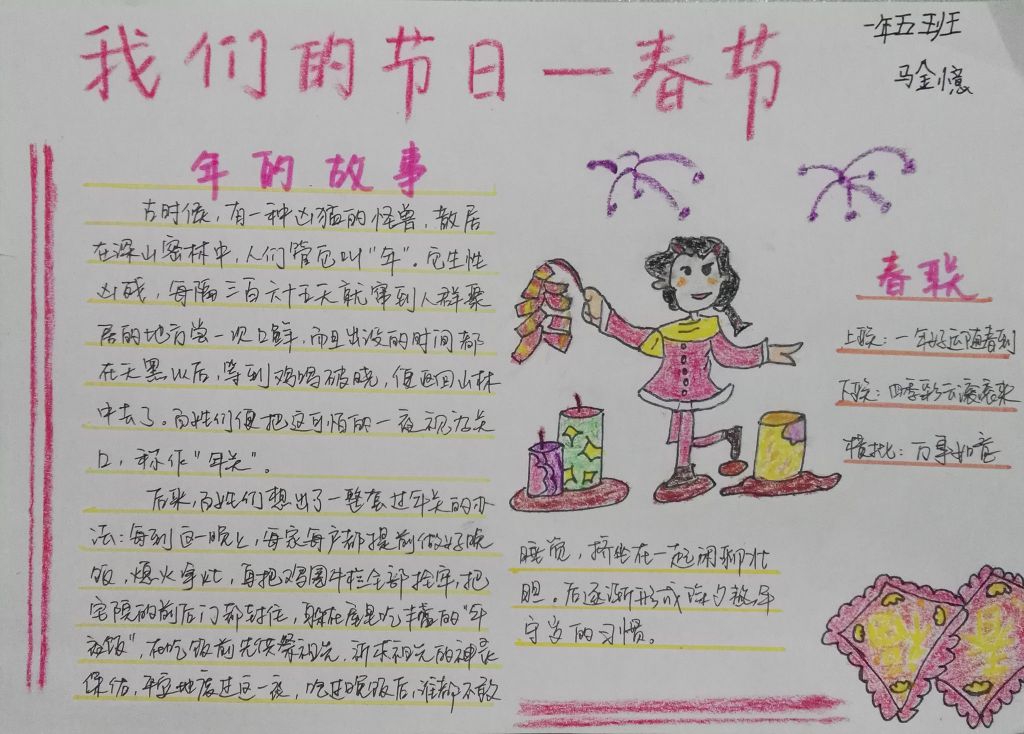 我们的节日—春节
一年五班
马金憶
年的故事
古时候，有一种凶猛的怪兽，散居
在深山密林中，人们管它叫“年”。它生性
凶残，每隔三百六十五天就窜到人群聚
居的地方尝一次口鲜，而且出没的时间都
在天黑以后，等到鸡鸣破晓，便返回山林
中去了。百姓们便把这可怕的一夜视为关
口，称作“年关”。
后来，百姓们想出了一整套过年关的办
法：每到这一晚上，每家每户都提前做好晚
饭，熄火净灶，再把鸡圈牛栏全部拴牢，把
宅院的前后门都封住，躲在屋里吃丰盛的“年
夜饭”，在吃饭前先供祭祖先，祈求祖先的神灵
保佑，平安地度过这一夜，吃过晚饭后，谁都不敢
睡觉，挤坐在一起闲聊壮
胆。后逐渐形成除夕熬年
守岁的习惯。
春联
上联：一年好运随春到
下联：四季彩云滚滚来
横批：万事如意
福